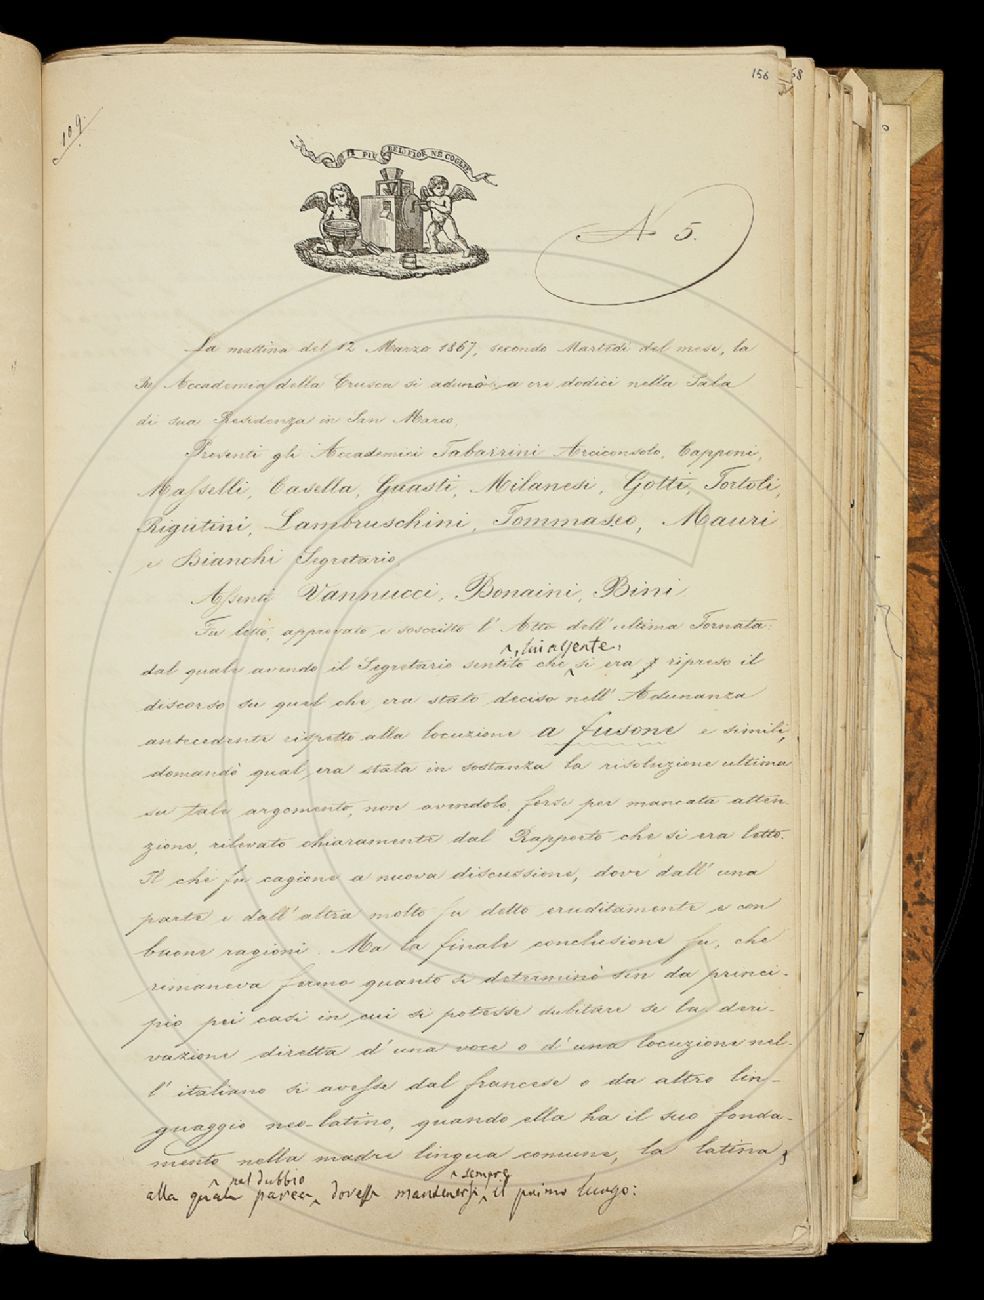 156
68
109.
IL PIÙ BEL FIOR NE COGLIE
N 5.
La mattina del 12 Marzo 1867, secondo Martedì del mese, la
R. Accademia della Crusca si adunò a ore dodici nella Sala
di sua Residenza in San Marco.
Presenti gli Accademici Tabarrini Arciconsolo, Capponi,
Masselli, Casella, Guasti, Milanesi, Gotti, Tortoli,
Rigutini, Lambruschini, Tommaseo, Mauri
e Bianchi Segretario.
Assenti Vannucci, Bonaini, Bini
Fu letto, approvato e soscritto l'Atto dell'ultima Tornata:
, lui assente,
dal quale avendo il Segretario sentito che si era ripreso il
discorso su quel che era stato deciso nell'Adunanza
antecedente rispetto alla locuzione a fusone e simili,
domandò qual era stata in sostanza la risoluzione ultima
su tale argomento, non avendolo, forse per mancata atten-
zione, rilevato chiaramente dal Rapporto che si era letto.
Il che fu cagione a nuova discussione, dove dall'una
parte e dall'altra molto fu detto eruditamente e con
buone ragioni. Ma la finale conclusione fu, che
rimaneva fermo quanto si determinò sin da princi-
pio pei casi in cui si potesse dubitare se la deri-
vazione diretta d'una voce o d'una locuzione nel-
l'italiano si avesse dal francese o da altro lin-
guaggio neo-latino, quando ella ha il suo fonda-
mento nella madre lingua comune, la latina,
nel dubbio sempre
alla quale parea dovesse mantenersi il primo luogo: